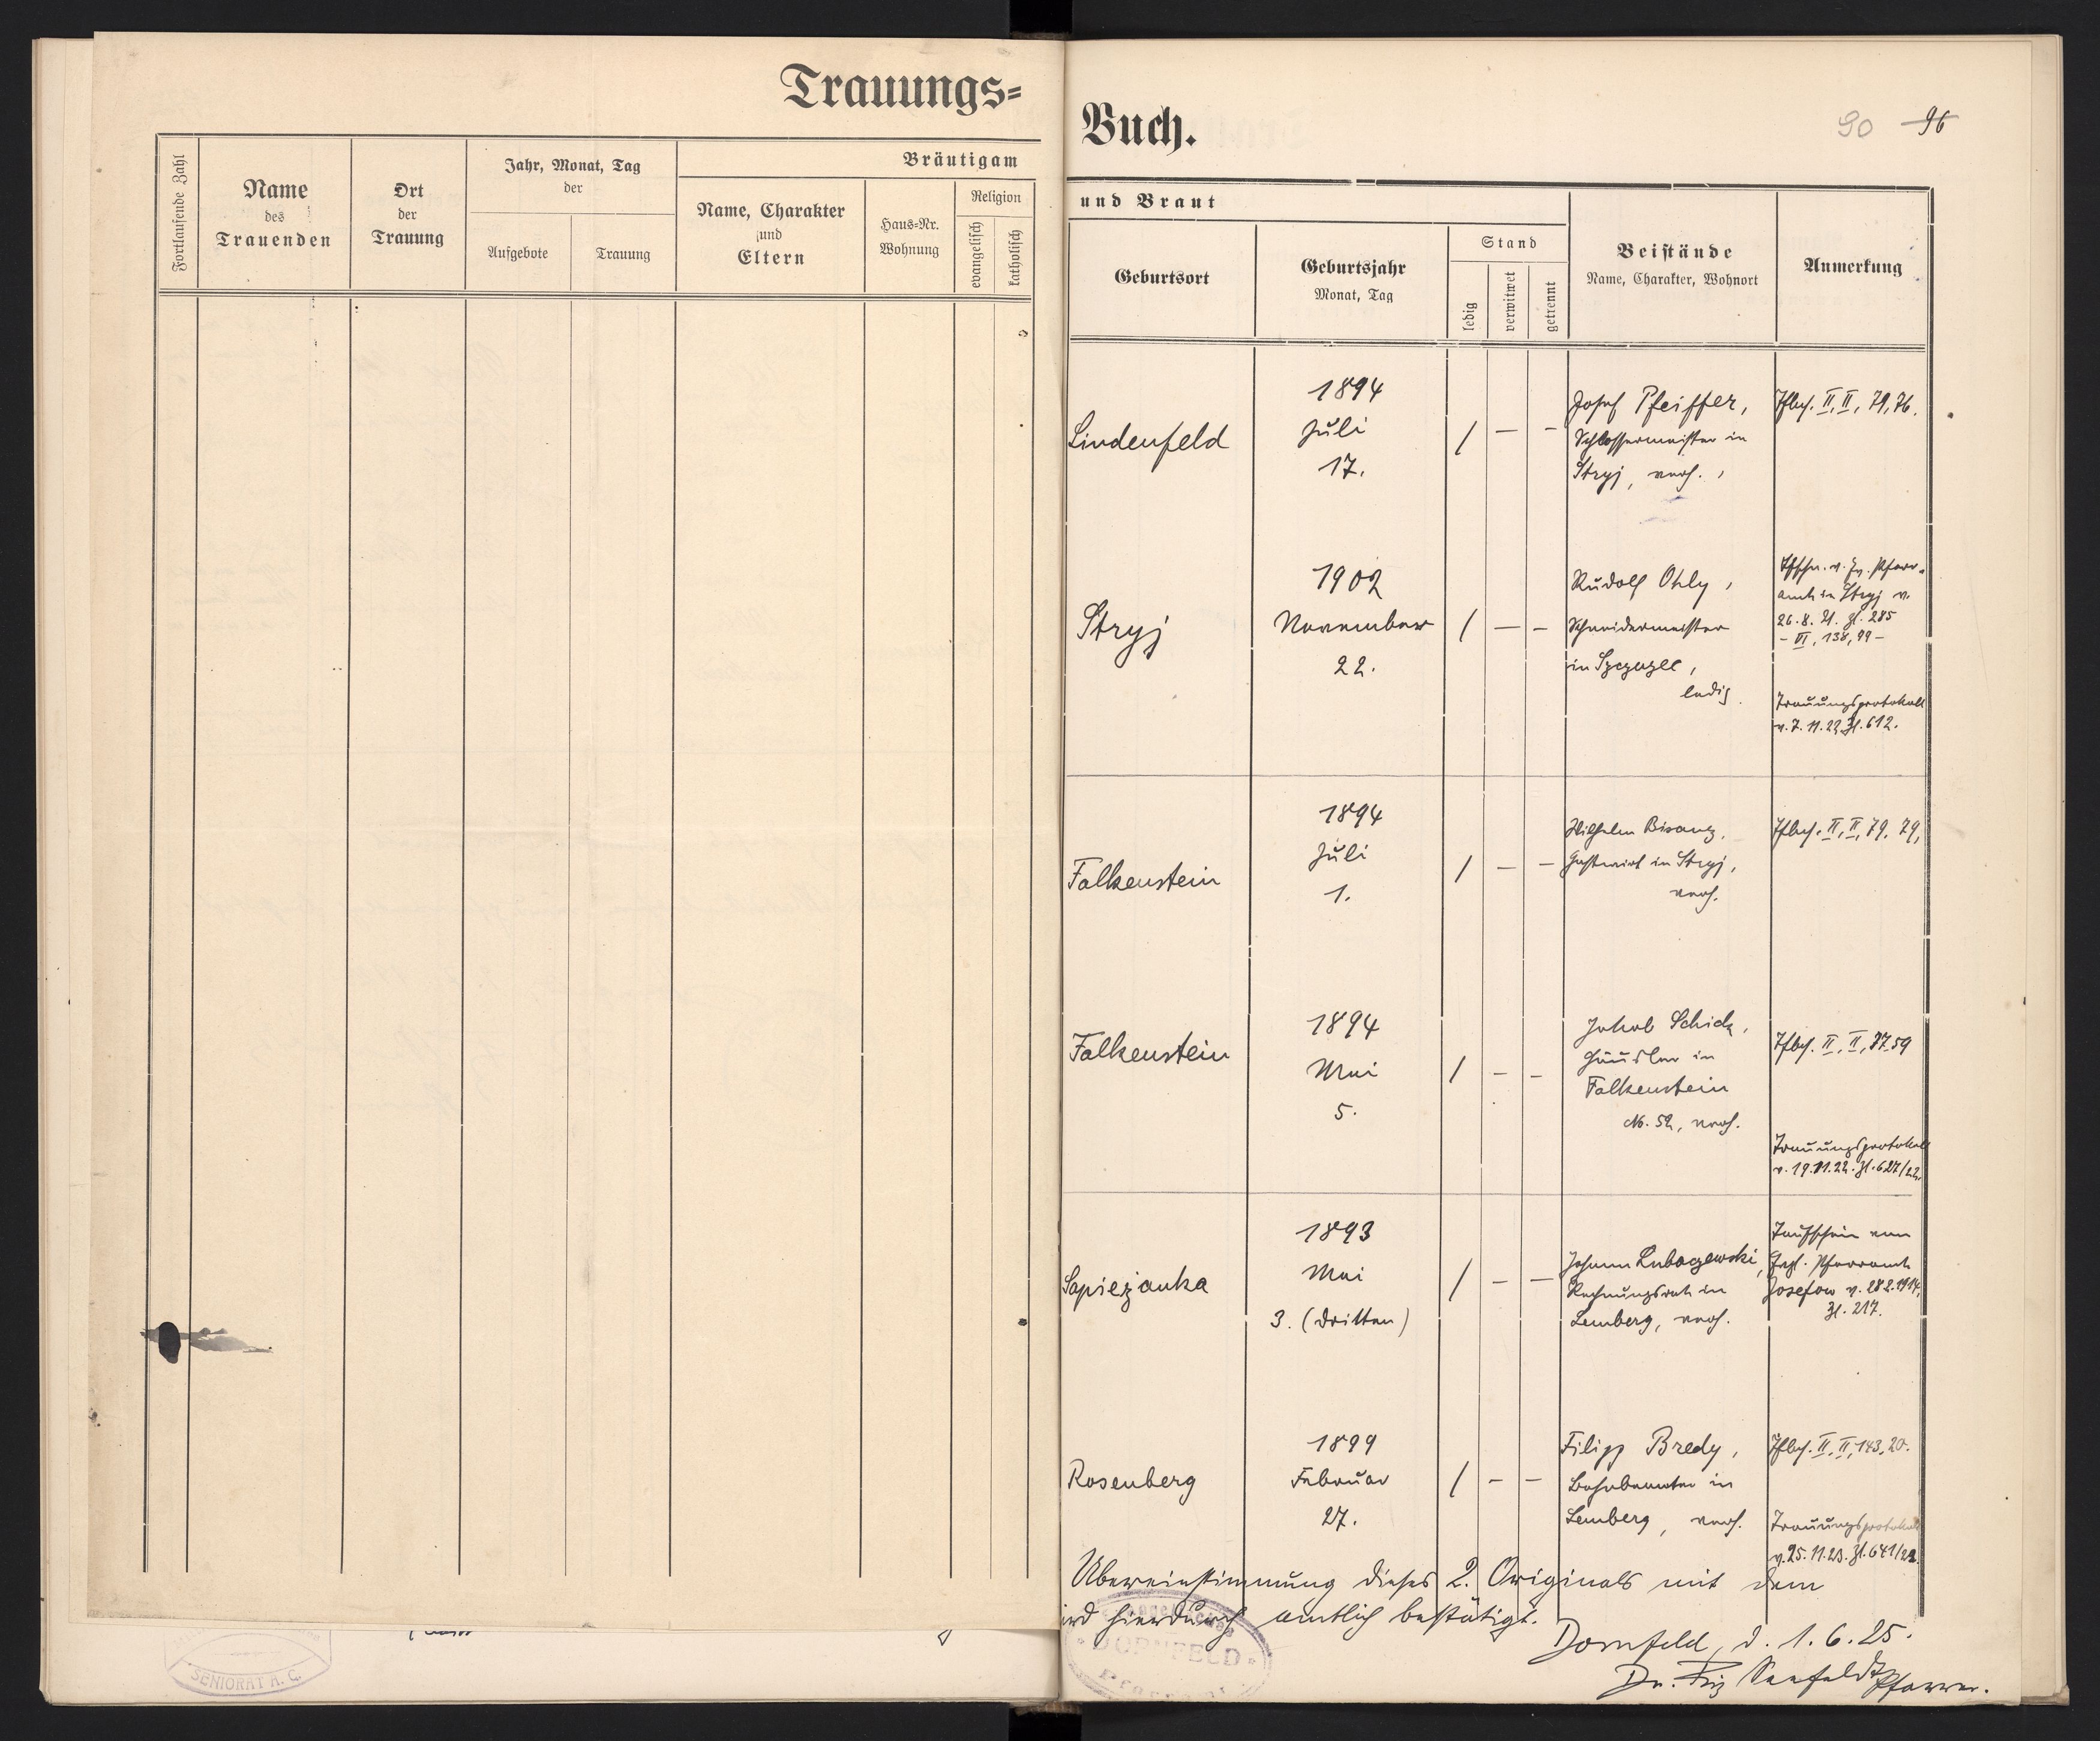 Trauungs=
Fortlaufende Zahl
Name
des
Trauenden
Ort
der
Trauung
Jahr, Monat, Tag
der
Aufgebote
Trauung
Bräutigam
Name, Charakter
und
Eltern
Haus=Nr.
Wohnung
Religion
evangelisch
katholisch
SENIORAT A. C.
Buch.
90 96
und Braut
Geburtsort
Geburtsjahr
Monat, Tag
Stand
ledig
verwitwet
getrennt
Beistände
Name, Charakter, Wohnort
Anmerkung
Lindenfeld
1894
Juli
17.
/ — –
Josef Pfeiffer,
Schlossermeister in
Stryj, verh.,
Tfbch. II, II, 79, 76.
Stryj
1902
November
22.
/ — –
Rudolf Ohly,
Schneidermeister
in Szczyzec,
ledig.
Tfschn. v. Ev. Pfarr-
amt in Stryj v.
26.8.21. Zl. 285
– VI, 138, 99 –
Trauungsprotokoll
v. 7.11.22. Zl. 612.
Falkenstein
1894
Juli
1.
/ – –
Wilhelm Bisanz,
Gastwirt in Stryj,
verh.
Tfbch. II, II, 79, 79,
Falkenstein
1894
Mai
5.
/ – –
Jakob Schick,
Häusler in
Falkenstein
No. 52, verh.
Tfbch. II, II, 77.59
Trauungsprotokoll
v. 19.11.22. Zl. 627/22.
Sapiezanka
1893
Mai
3. (dritten)
/ – —
Johann Lubaczewski,
Rechnungsrat in
Lemberg, verh.
Taufschein vom
Pfarramt
Josefow v. 28.2.1914,
Zl. 217.
Rosenberg
1899
Februar
27.
/ – –
Filipp Bredy,
Bahnbeamter in
Lemberg, verh.
Tfbch. II, II, 143, 20.
Trauungsprotokoll
v. 25.11.23. Zl. 641/22.
Übereinstimmung dieses 2. Originals mit dem
ird hierdurch amtlich bestätigt.
DORNFELD
Dornfeld, d. 1.6.25.
Dr. Friz Seefeldt Pfarrer.